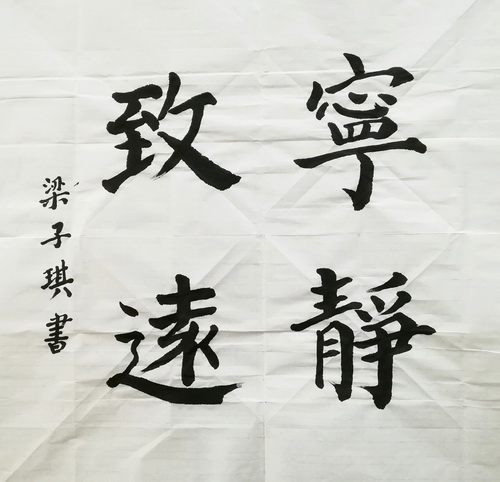 寧靜
致遠
梁子琪書